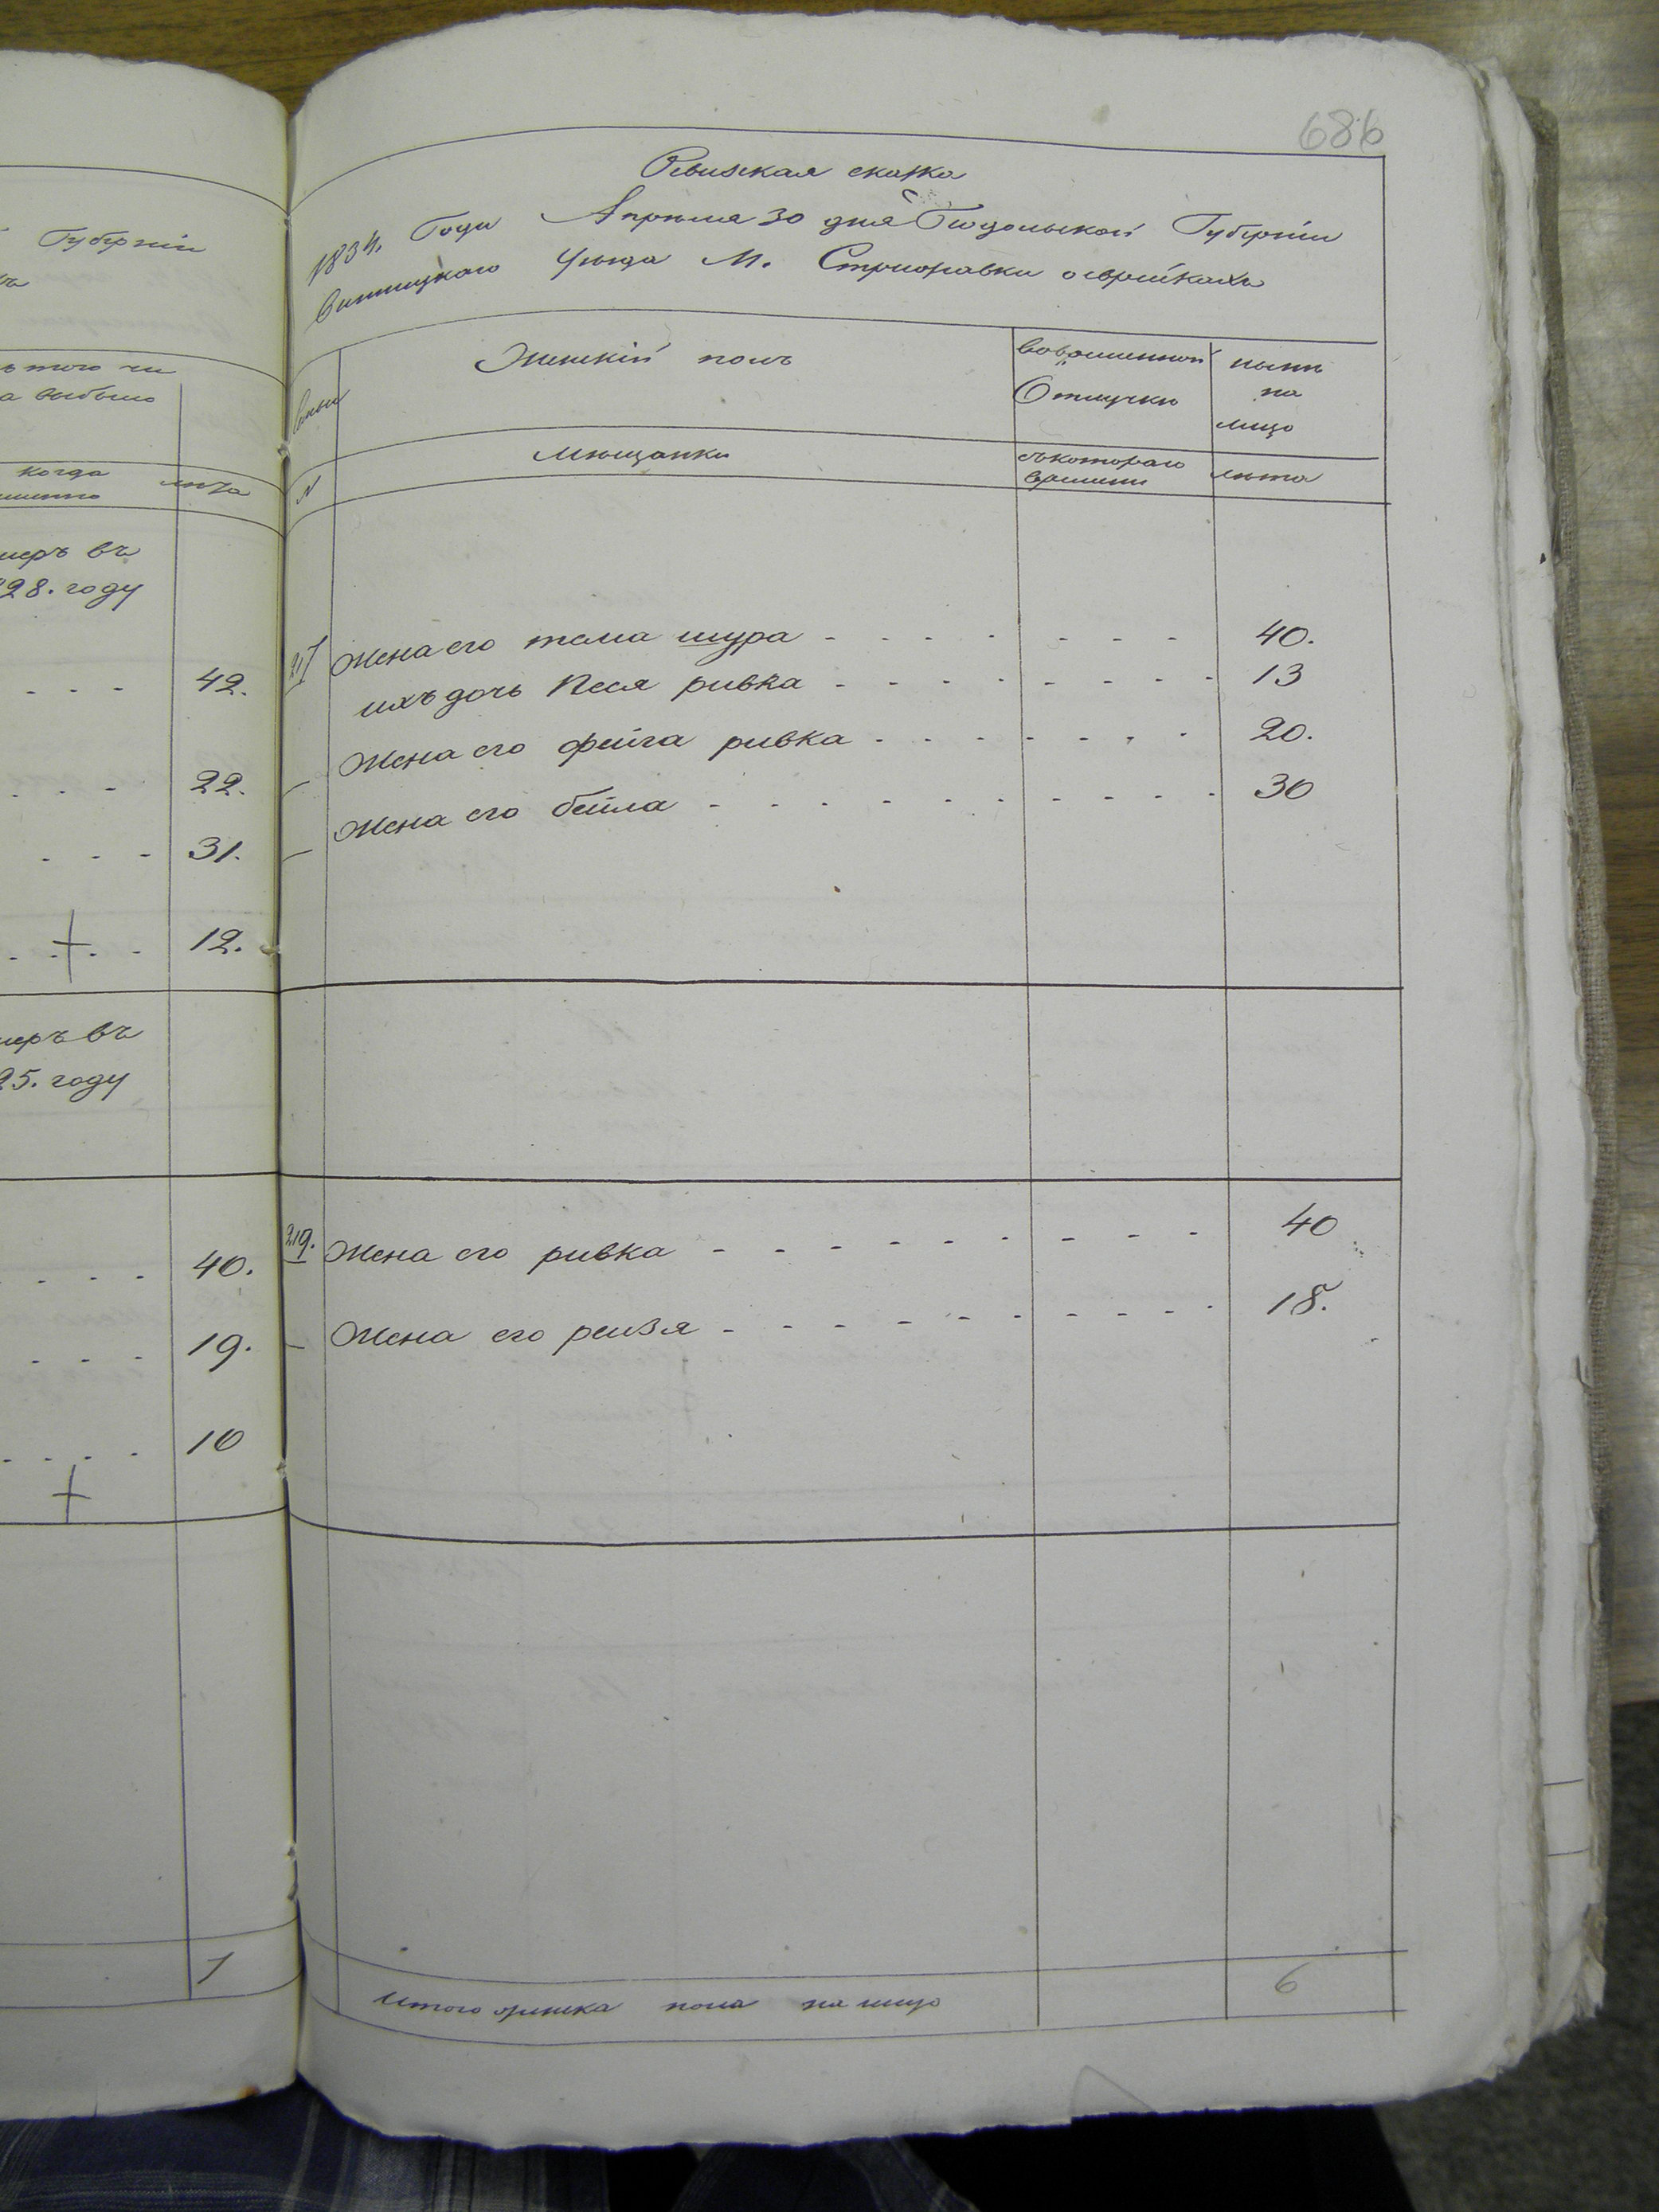 Губерніи
ъ того чи
а выбыло
когда
лѣта
меръ въ
28. году
42.
22.
31.
12.
меръ въ
25. году
40.
19.
10
1
686
Ревизская сказка
1834. Года Апрѣля 30 дня Подольской Губерніи
Винницкаго Уѣзда М. Стрижавки о еврейкахъ
Семьи
Женскій полъ
Вовременной Отлучкѣ
нынѣ на лицо
N
Мѣщанки
съкотораго времени
лѣта
217 Жена его тема шура 40.
ихъ дочь Песя ривка 13
Жена его фейга ривка 20.
Жена его бейла 30
219. Жена его ривка 40
Жена его рейзя 18.
Итого женска пола на лицо 6